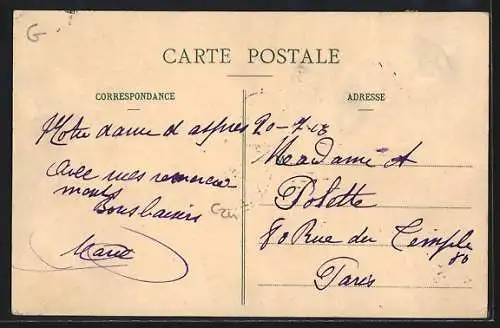 G
CARTE POSTALE
CORRESPONDANCE
ADRESSE
Notre dame d aspres 20-7-13
Avec mes remercie
ments
Bons baisers
Marie
Madame A
Polette
80 Rue du Temple
80
Paris